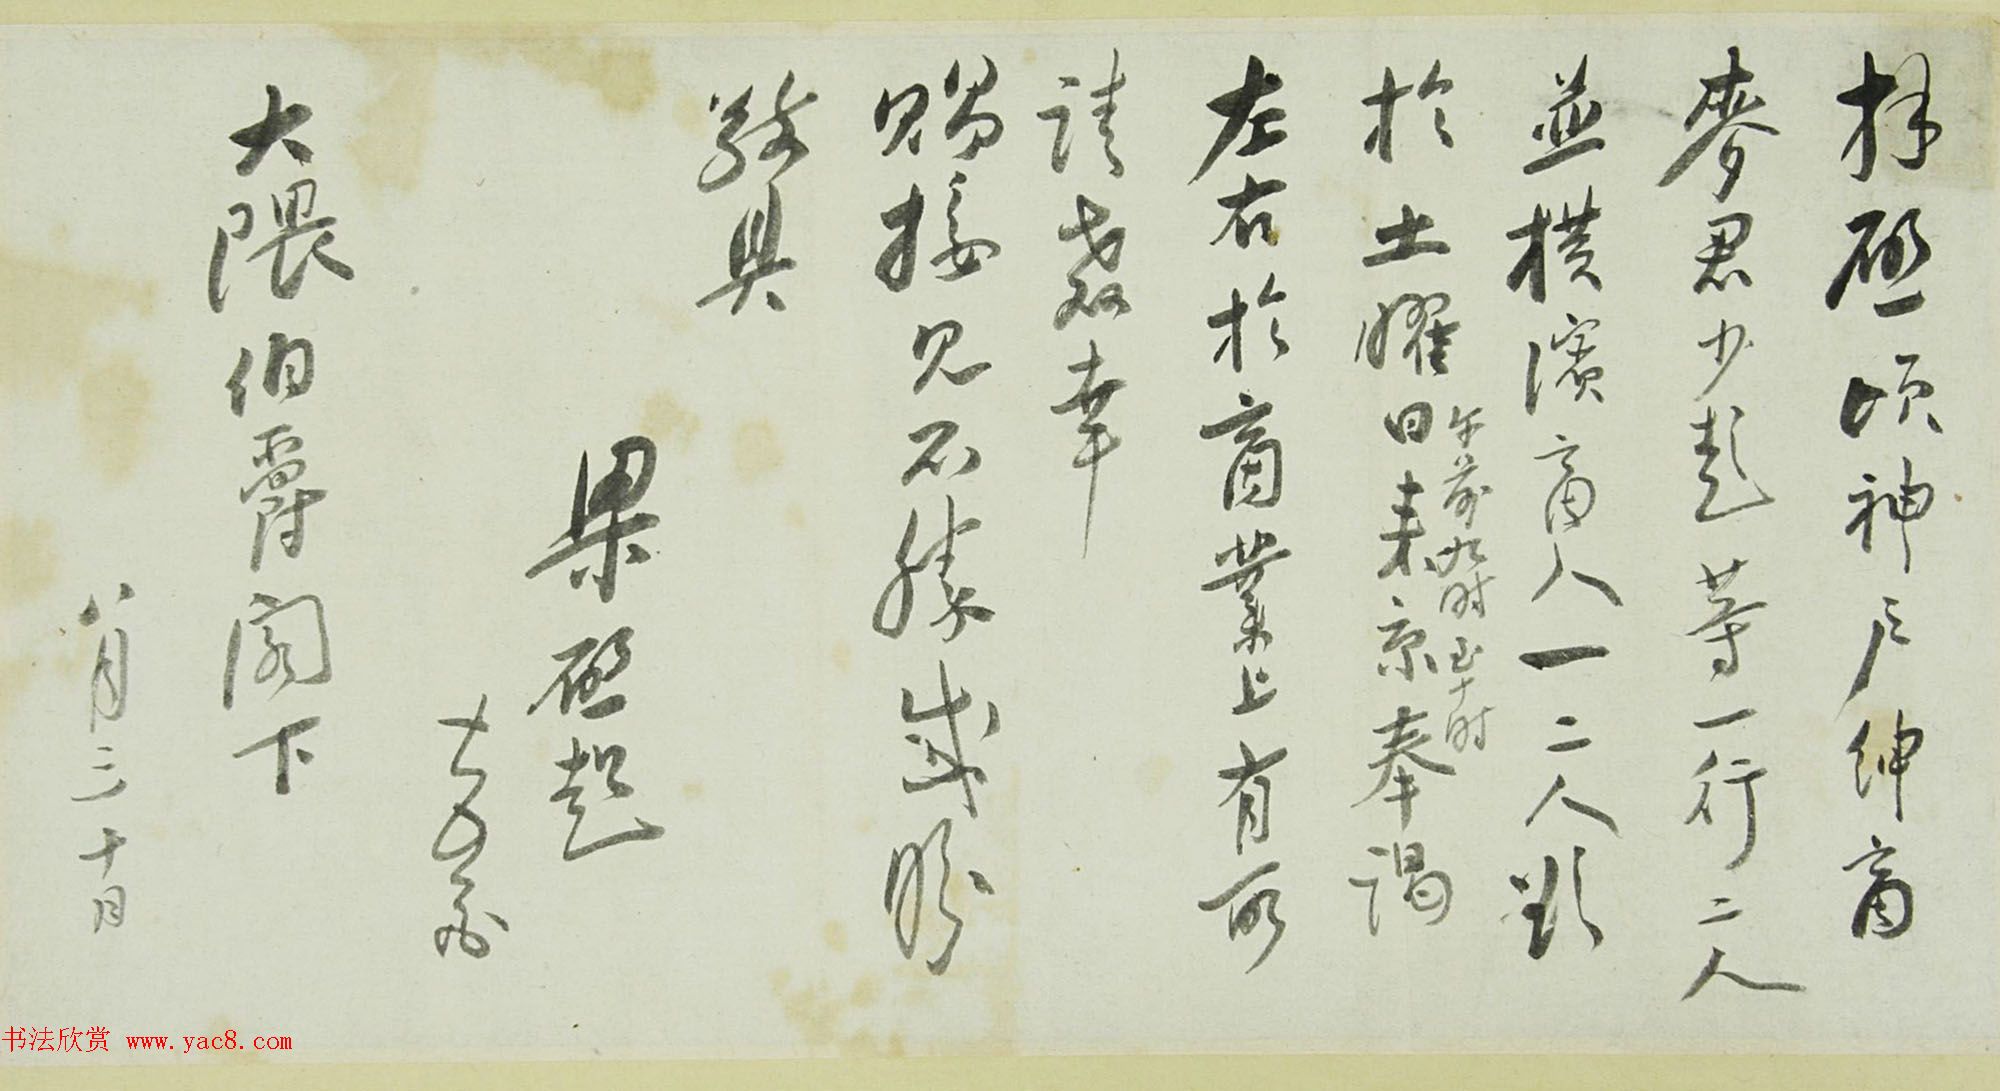 拜啟頃神戶紳商
麥君少彭等一行二人
並橫濱商人一二人欲
於土曜日來京奉謁
午前九時至十時
左右於商業上有所
請教幸
賜接見不勝感盼
敬具
梁啟超
大隈伯爵閣下
八月三十日
书法欣赏 www.yac8.com